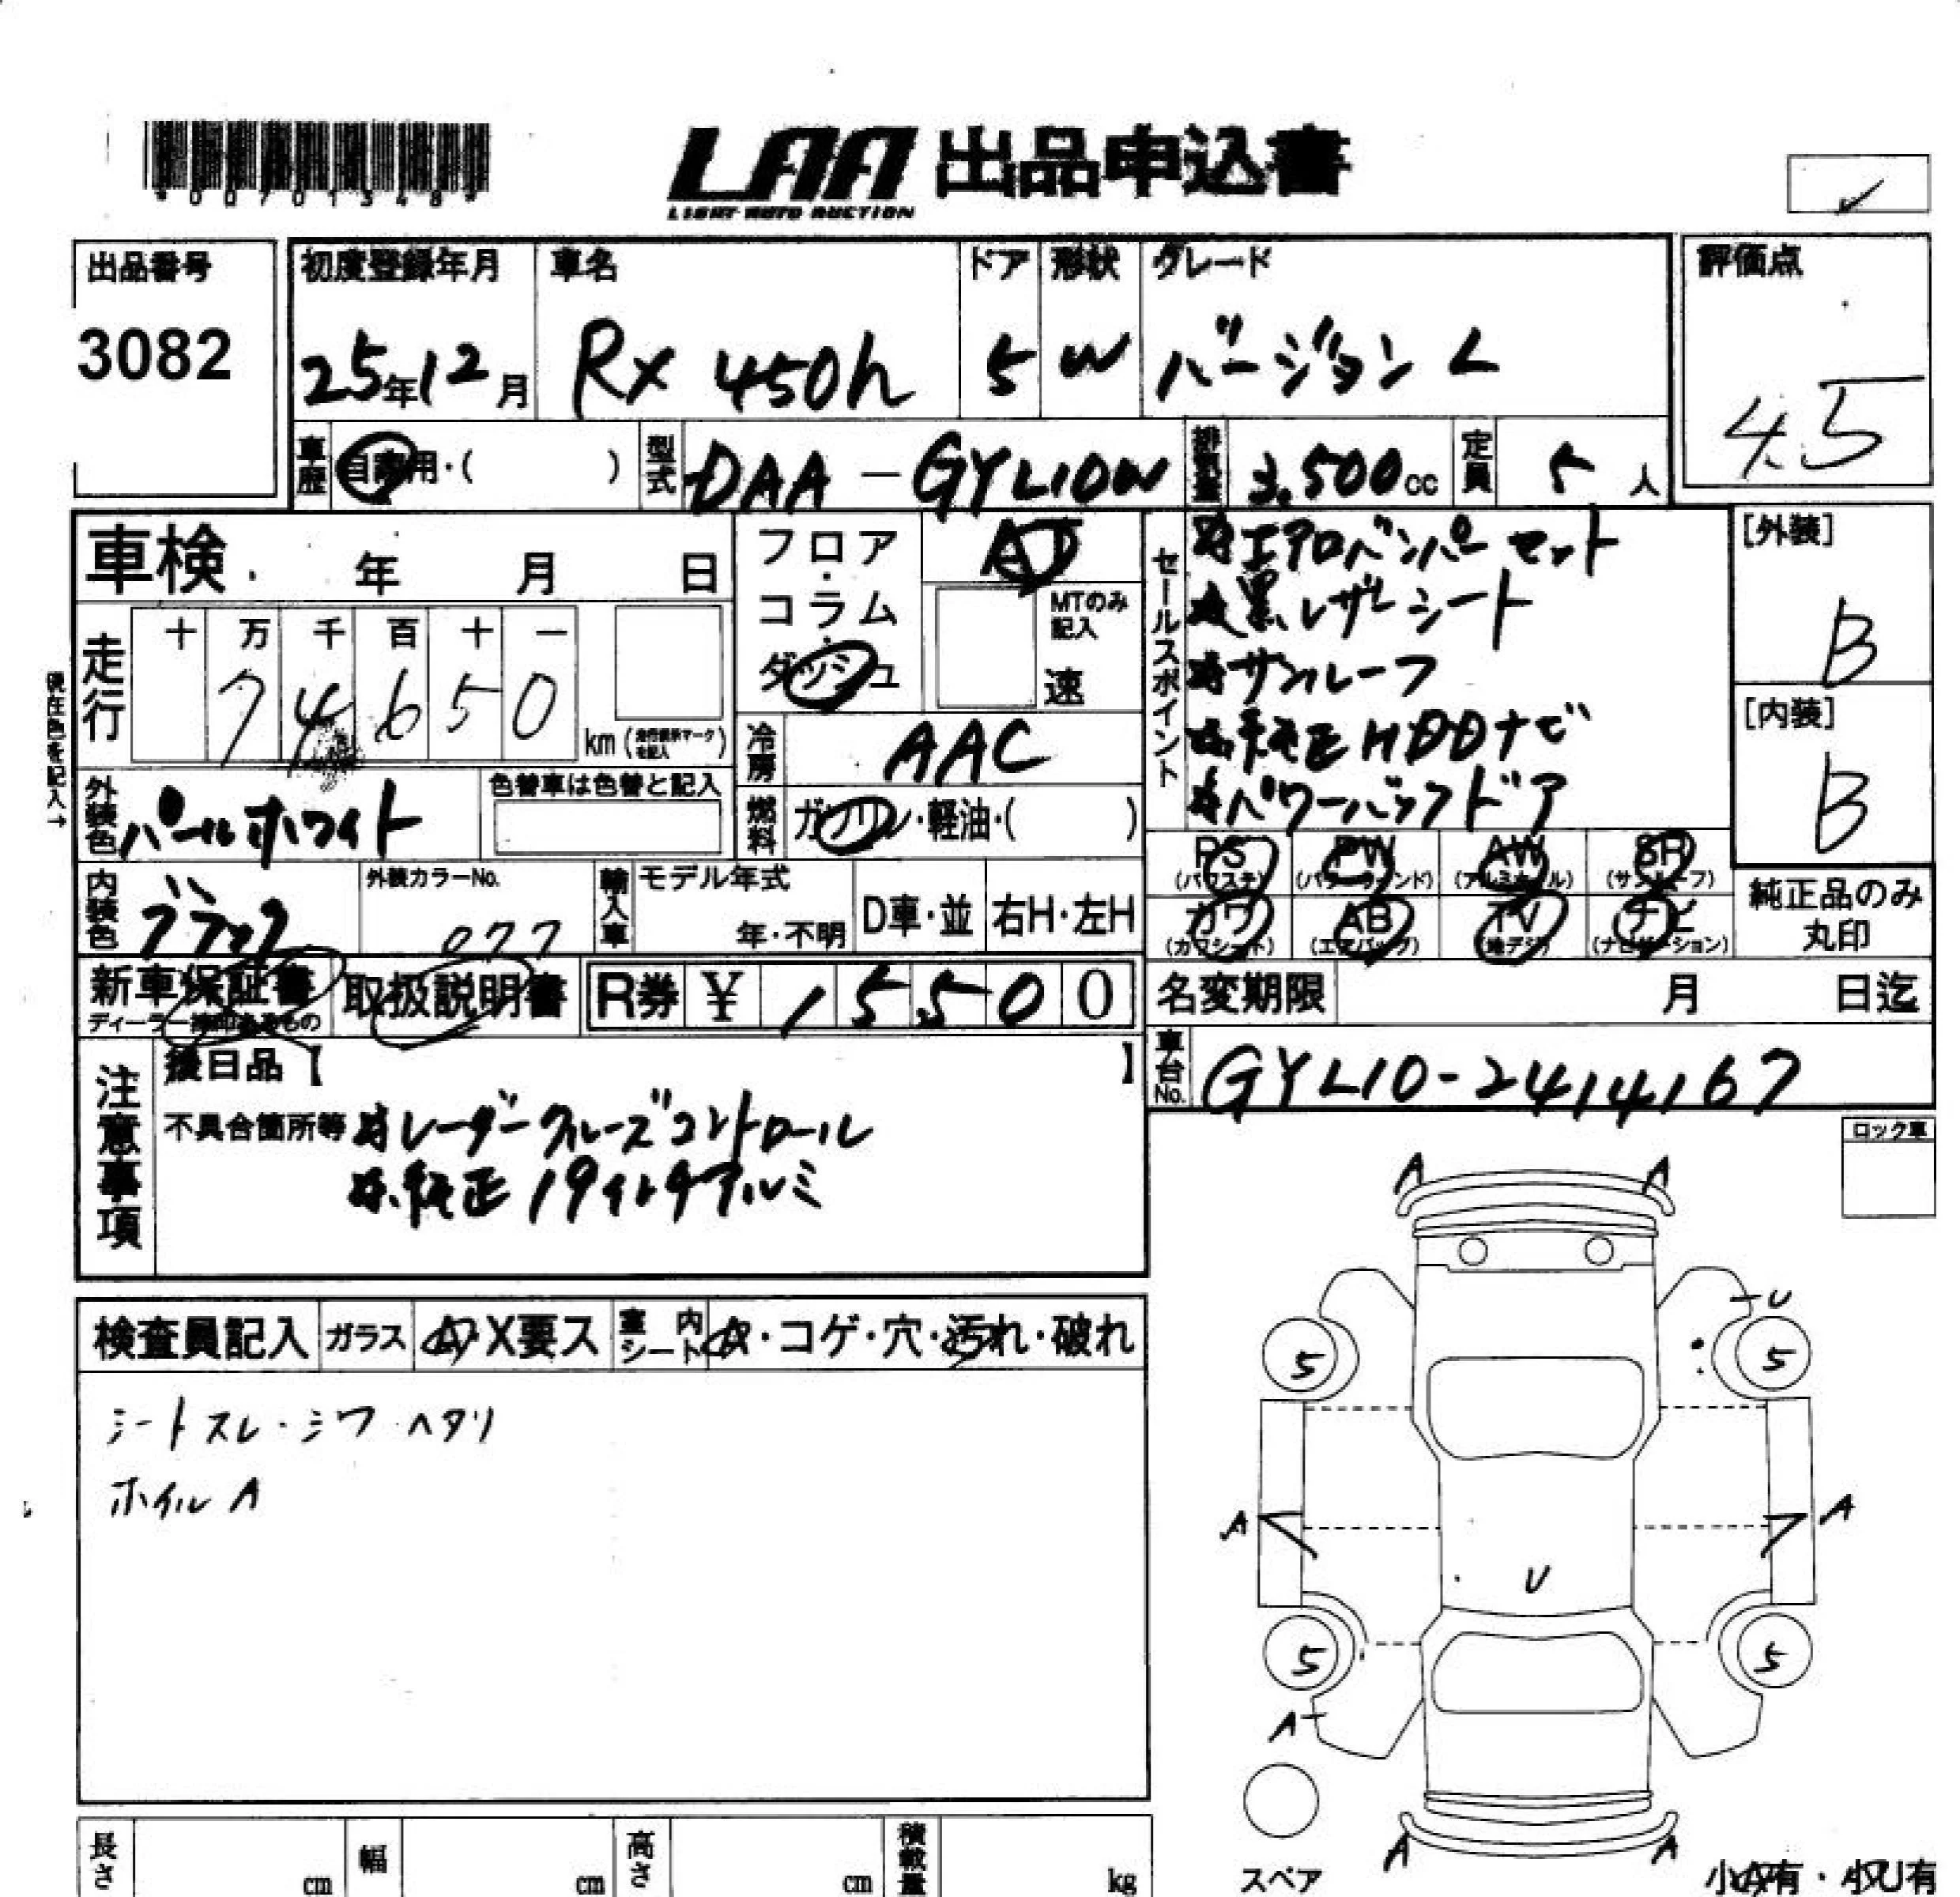 *00701348*
LAA 出品申込書
LIGHT AUTO AUCTION
出品番号
3082
初度登録年月
25年12月
車名
RX 450h
ドア
5
形状
W
グレード
バージョン L
評価点
4.5
車歴
自家用・( )
型式
DAA-GYL10W
排気量
3,500cc
定員
5人
車検 年 月 日
走行
十 万 千 百 十 一
7 4 6 5 0
km (走行距離マークを記入)
現在色を記入→
外装色
パールホワイト
色替車は色替と記入
内装色
ブラック
外装カラーNo.
077
フロア・コラム・ダッシュ
AT
MTのみ記入
速
冷房
AAC
燃料
ガソリン・軽油・( )
輸入車
モデル年式
年・不明
D車・並
右H・左H
セールスポイント
エアロバンパーセット
黒レザーシート
サンルーフ
純正HDDナビ
パワーバックドア
[外装]
B
[内装]
B
PS (パワステ) PW (パワーウィンド) AW (アルミホイール) SR (サンルーフ)
カワ (カワシート) AB (エアバッグ) TV (地デジ) ナビ (ナビゲーション)
純正品のみ丸印
新車保証書
ディーラー捺印あるもの
取扱説明書
R券 ¥ 15,500
名変期限 月 日迄
車台No.
GYL10-2414167
注意事項
後日品【 】
不具合箇所等 レーダークルーズコントロール
純正19インチアルミ
ロック車
検査員記入 ガラス A・X要ス 室内シート A・コゲ・穴・汚れ・破れ
シートスレ・シワ・ヘタリ
ホイルA
A A
U
5 5
A A
U
5 5
A
A A
スペア
小A有・小U有
長さ cm 幅 cm 高さ cm 積載量 kg